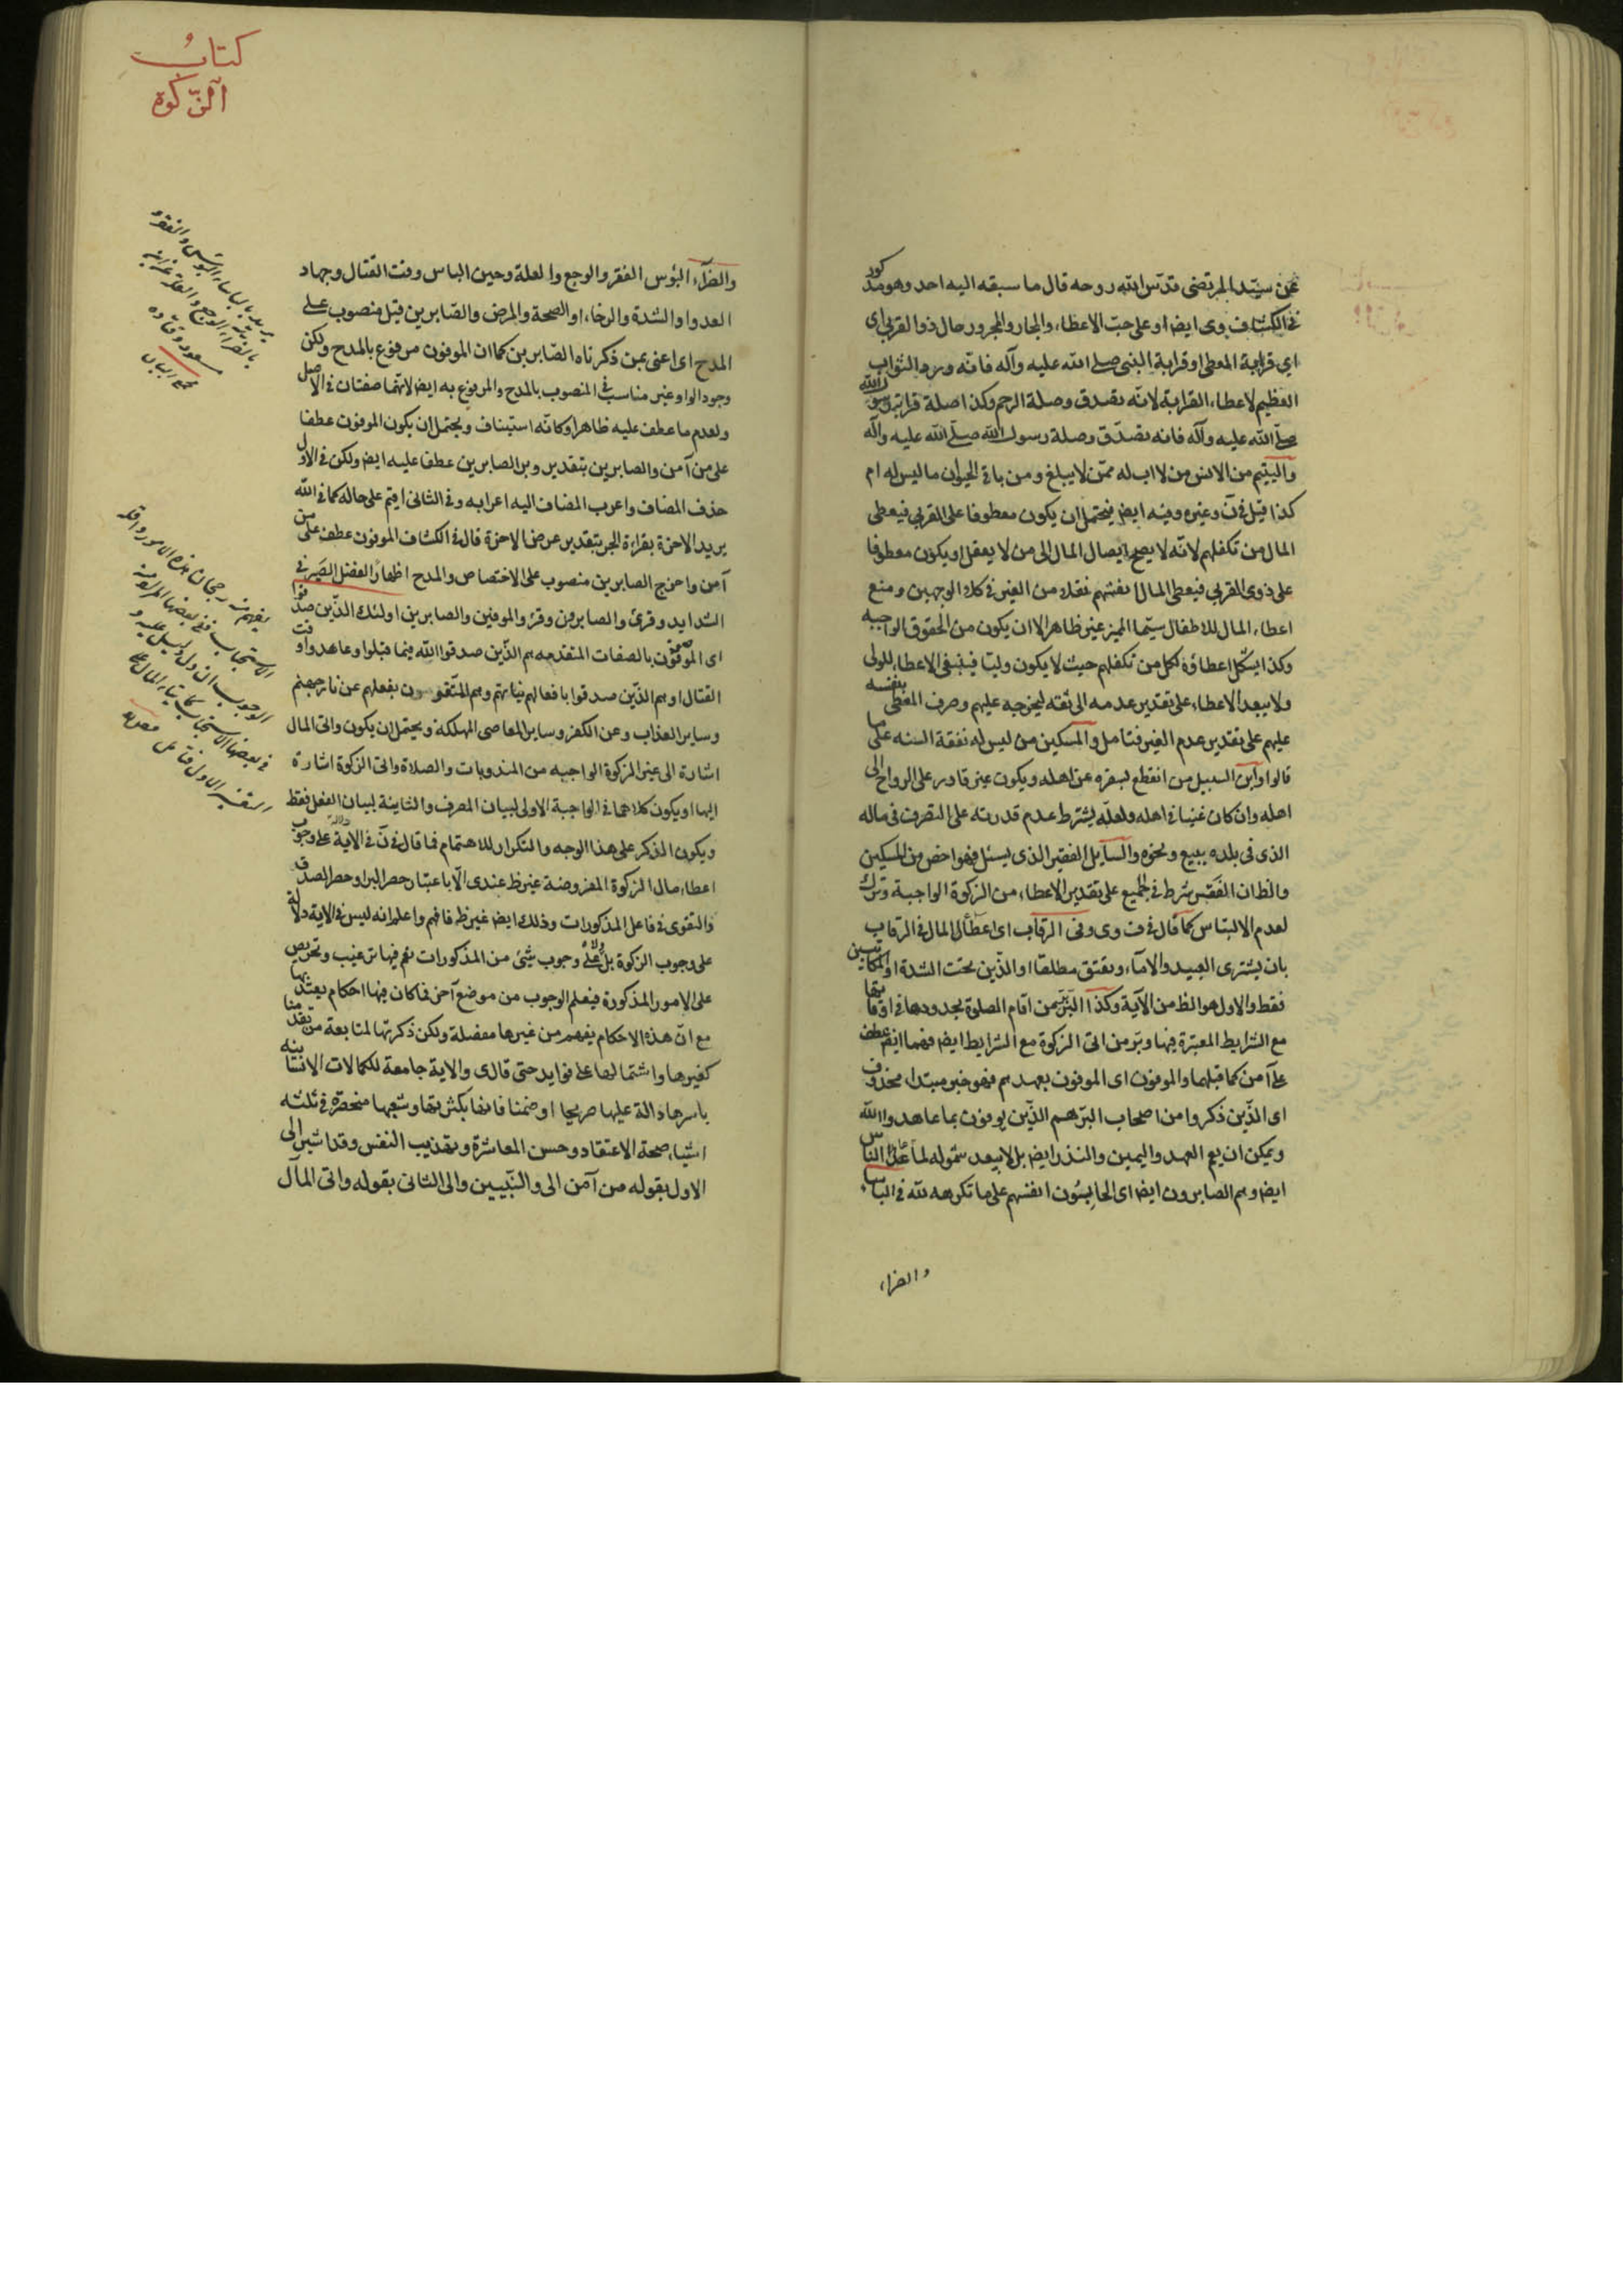 عن سيّد المرتضى قدّس الله روحه قال ما سبقه اليه احد وهو مذكور
في الكشاف وى ايضا او على حبّ الاعطاء والجار والمجرور حال ذوا القربى اى
اي قرابة المعطى او قرابة النبي صلى الله عليه وآله فانّه ورد الثواب
العظيم لاعطاء القرابة لانّه تصدق وصلة الرحم وكذا صلة قرابة رسول الله
صلّى الله عليه وآله فانه تصدّق وصلة رسول الله صلّى الله عليه وآله
واليتيم من الانس من لا اب له ممّن لا يبلغ ومن باقى الحيوان ما ليس له ام
كذا قيل في ن وغيره وفيه ايض فيحتمل ان يكون معطوفا على القربى فيعطى
المال من تكفلهم لانّه لا يصح ايصال المال الى من لا يعقل او يكون معطوفا
على ذوى القربى فيعطى المال انفسهم نقلا من الغير في كلا الوجهين ومنع
اعطاء المال للاطفال سيّما المميز غير ظاهر الا ان يكون من الحقوق الواجبه
وكذا يشكل اعطاؤه لكل من تكفلهم حيث لا يكون وليّا فينبغى الاعطاء للولى
ولا يبعد الاعطاء على تقدير عدمه الى ثقة ليخرجه عليهم وصرف المعطى بنفسه
عليهم على تقدير عدم الغير فتامل والمسكين من ليس له نفقة السنه على ما
قالوا وابن السبيل من انقطع لسفره عن اهله ويكون غير قادر على الرواح الى
اهله وان كان غنيا في اهله ولعله يشترط عدم قدرته على التصرف فى ماله
الذى فى بلده ببيع ونحوه والسايل الفقير الذى يسئل فهو اخص من المسكين
والظ ان الفقر شرط في الجميع على تقدير الاعطاء من الزكوة الواجبة وترك
لعدم الالتباس كما قال في ف وى وفى الرقاب اى اعطاء المال في الرقاب
بان يشترى العبيد والاماء وتعتق مطلقا او الّذين تحت الشدة او المكاتبين
فقط والاول هو الظ من الآية وكذا البرّ من اقام الصلوة بحدودها في اوقاتها
مع الشرايط المعتبرة فيها وبرّ من اتى الزكوة مع الشرايط ايض فهما ايض عطف
على آمن كما قبلهما والموفون اى الموفون بعهدهم فهو خبر مبتداء محذوف
اى الّذين ذكروا من اصحاب البرّ هم الذّين يوفون بما عاهدوا الله
ويمكن ان يعم العهد واليمين والنذر ايض بل لا يبعد شموله لما عهد الناس
ايض وهم الصابرون ايض اى الحابسون انفسهم على ما تكرهه لله في الباساء
والضراء
كتاب
الزّكوة
والضرّاء البؤس الفقر والوجع والعلة وحين الباس وقت القتال وجهاد
العدو او الشدة والرخاء او الصحة والمرض والصّابرين قيل منصوب على
المدح اى اعنى بمن ذكرناه الصّابرين كما ان الموفون مرفوع بالمدح ولكن
وجود الواو غير مناسب في المنصوب بالمدح والمرفوع به ايض لانهما صفتان في الاصل
ولعدم ما عطف عليه ظاهرا وكانّه استيناف ويحتمل ان يكون الموفون عطفا
على من آمن والصابرين بتقدير وبر الصابرين عطفا عليه ايض ولكن في الاول
حذف المضاف واعرب المضاف اليه اعرابه وفي الثانى اقيم على حاله كما في الله
يريد الاخرة بقراءة الجر بتقدير عرض الاخرة قال في الكشاف الموفون عطف على من
آمن واخرج الصابرين منصوب على الاختصاص والمدح اظهارا لفضل الصبر في
الشدايد وقرئ والصابرون وقرئ والموفين والصابرين اولئك الذّين صدقوا
اى الموفون بالصفات المتقدمه هم الذّين صدقوا الله فيما قبلوا وعاهدوا وقت
القتال او هم الذّين صدقوا بافعالهم نياتهم وهم المتّقون بفعلهم عن نار جهنم
وساير العذاب وعن الكفر وساير المعاصى المهلكة ويحتمل ان يكون واتى المال
اشارة الى غير الزكوة الواجبه من المندوبات والصلاة واتى الزكوة اشارة
اليها او يكون كلاهما في الواجبة الاولى لبيان المصرف والثانية لبيان الفعل فقط
ويكون الذكر على هذا الوجه والتكرار للاهتمام فما قال في ن في الاية دلالة على وجوب
اعطاء مال الزكوة المفروضة غير ظ عندى الّا باعتبار حصر البر او حصر الصدق
والتقوى في فاعل المذكورات وذلك ايض غير ظ فافهم واعلم انه ليس في الاية دلالة
على وجوب الزكوة بل ولا على وجوب شيئ من المذكورات نعم فيها ترغيب وتحريص
على الامور المذكورة فيعلم الوجوب من موضع آخر فما كان فيها احكام يعتد بها
مع انّ هذه الاحكام يفهم من غيرها مفصلة ولكن ذكرتها لمتابعة من تقدمنا
كغيرها واشتمالها على فوايد حتى قال ى والاية جامعة للكمالات الانسانيه
باسرها دالة عليها صريحا او ضمنا فانها بكثرتها وشعبها منحصرة في ثلثه
اشياء صحة الاعتقاد وحسن المعاشرة وتهذيب النفس وقد اشير الى
الاول بقوله من آمن الى والنّبيين والى الثانى بقوله واتى المال
يريد بالباساء البؤس والفقر و
بالضراء الوجع والعلة عن ابن
مسعود وقتاده
مجمع البيان